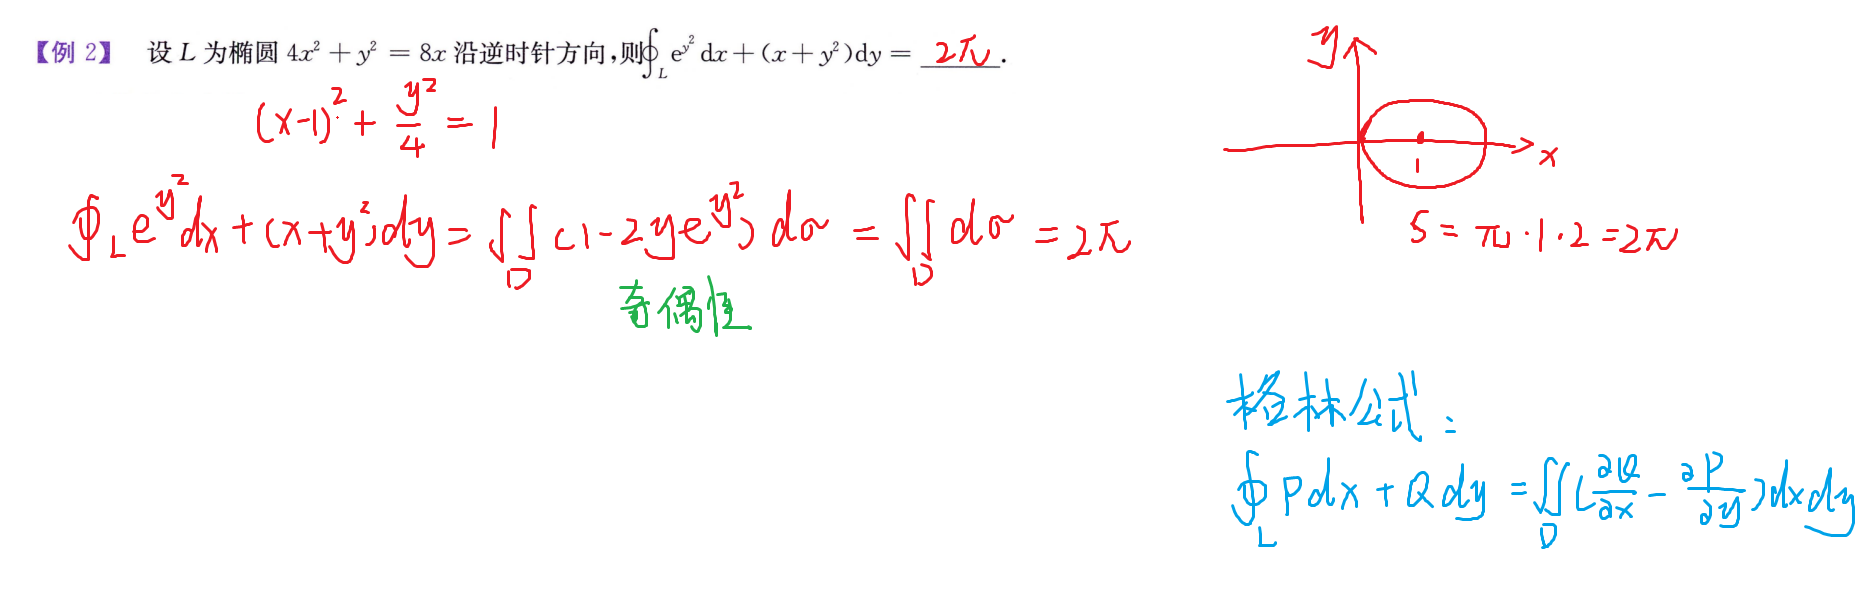 【例 2】 设 L 为椭圆 4x² + y² = 8x 沿逆时针方向,则∮_L e^{y²} dx + (x + y²)dy = 2π .
(x-1)² + y²/4 = 1
y
x
1
S = π·1·2 = 2π
∮_L e^{y²}dx + (x+y²)dy = ∬_D (1-2ye^{y²}) dσ = ∬_D dσ = 2π
奇偶性
格林公式:
∮_L Pdx + Qdy = ∬_D (∂Q/∂x - ∂P/∂y)dxdy